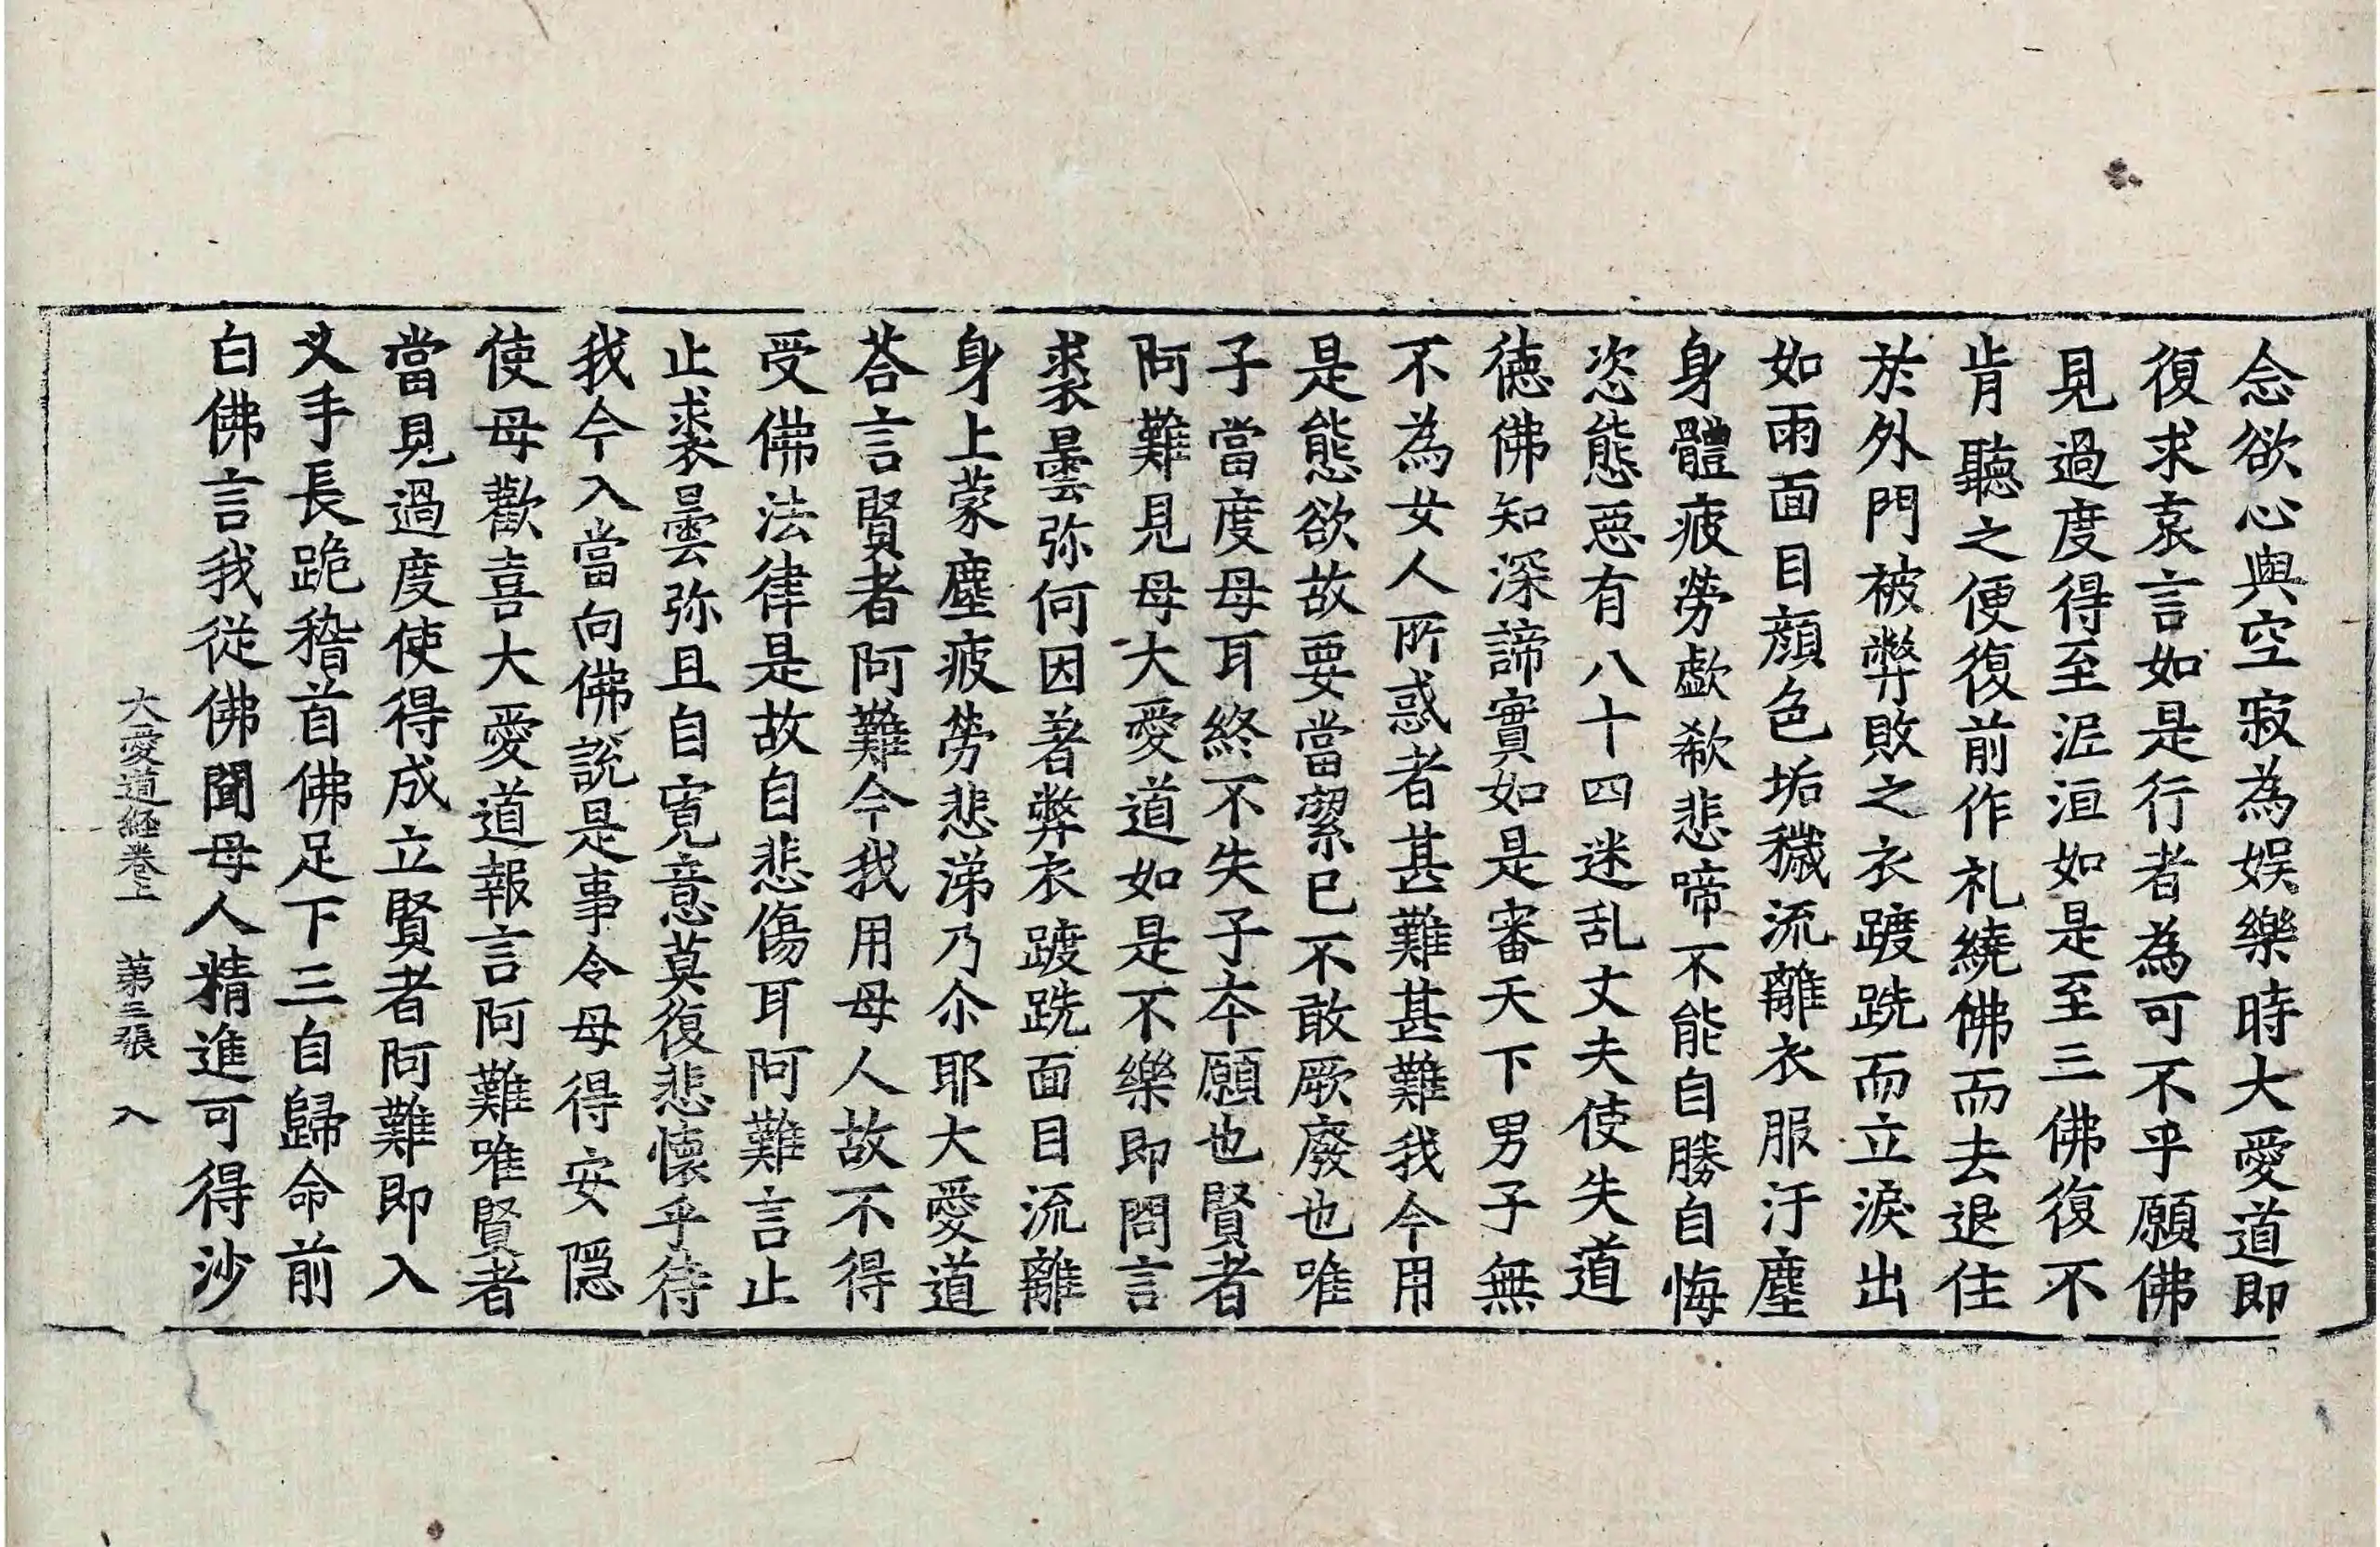 念欲心與空寂為娛樂時大愛道即
復求哀言如是行者為可不乎願佛
見過度得至泥洹如是至三佛復不
肯聽之便復前作礼繞佛而去退住
於外門被弊敗之衣踱跣而立淚出
如雨面目顔色垢穢流離衣服汙塵
身體疲勞歔欷悲啼不能自勝自悔
恣態惡有八十四迷乱丈夫使失道
徳佛知深諦實如是審天下男子無
不為女人所惑者甚難甚難我今用
是態欲故要當潔已不敢厥廢也唯
子當度母耳終不失子夲願也賢者
阿難見母大愛道如是不樂即問言
裘曇弥何因著弊衣踱跣面目流離
身上蒙塵疲勞悲涕乃尒耶大愛道
荅言賢者阿難今我用母人故不得
受佛法律是故自悲傷耳阿難言止
止裘曇弥且自寬意莫復悲懷乎待
我今入當向佛說是事令母得安隠
使母歡喜大愛道報言阿難唯賢者
當見過度使得成立賢者阿難即入
叉手長跪稽首佛足下三自歸命前
白佛言我從佛聞母人精進可得沙
大愛道經卷上　第三張　入